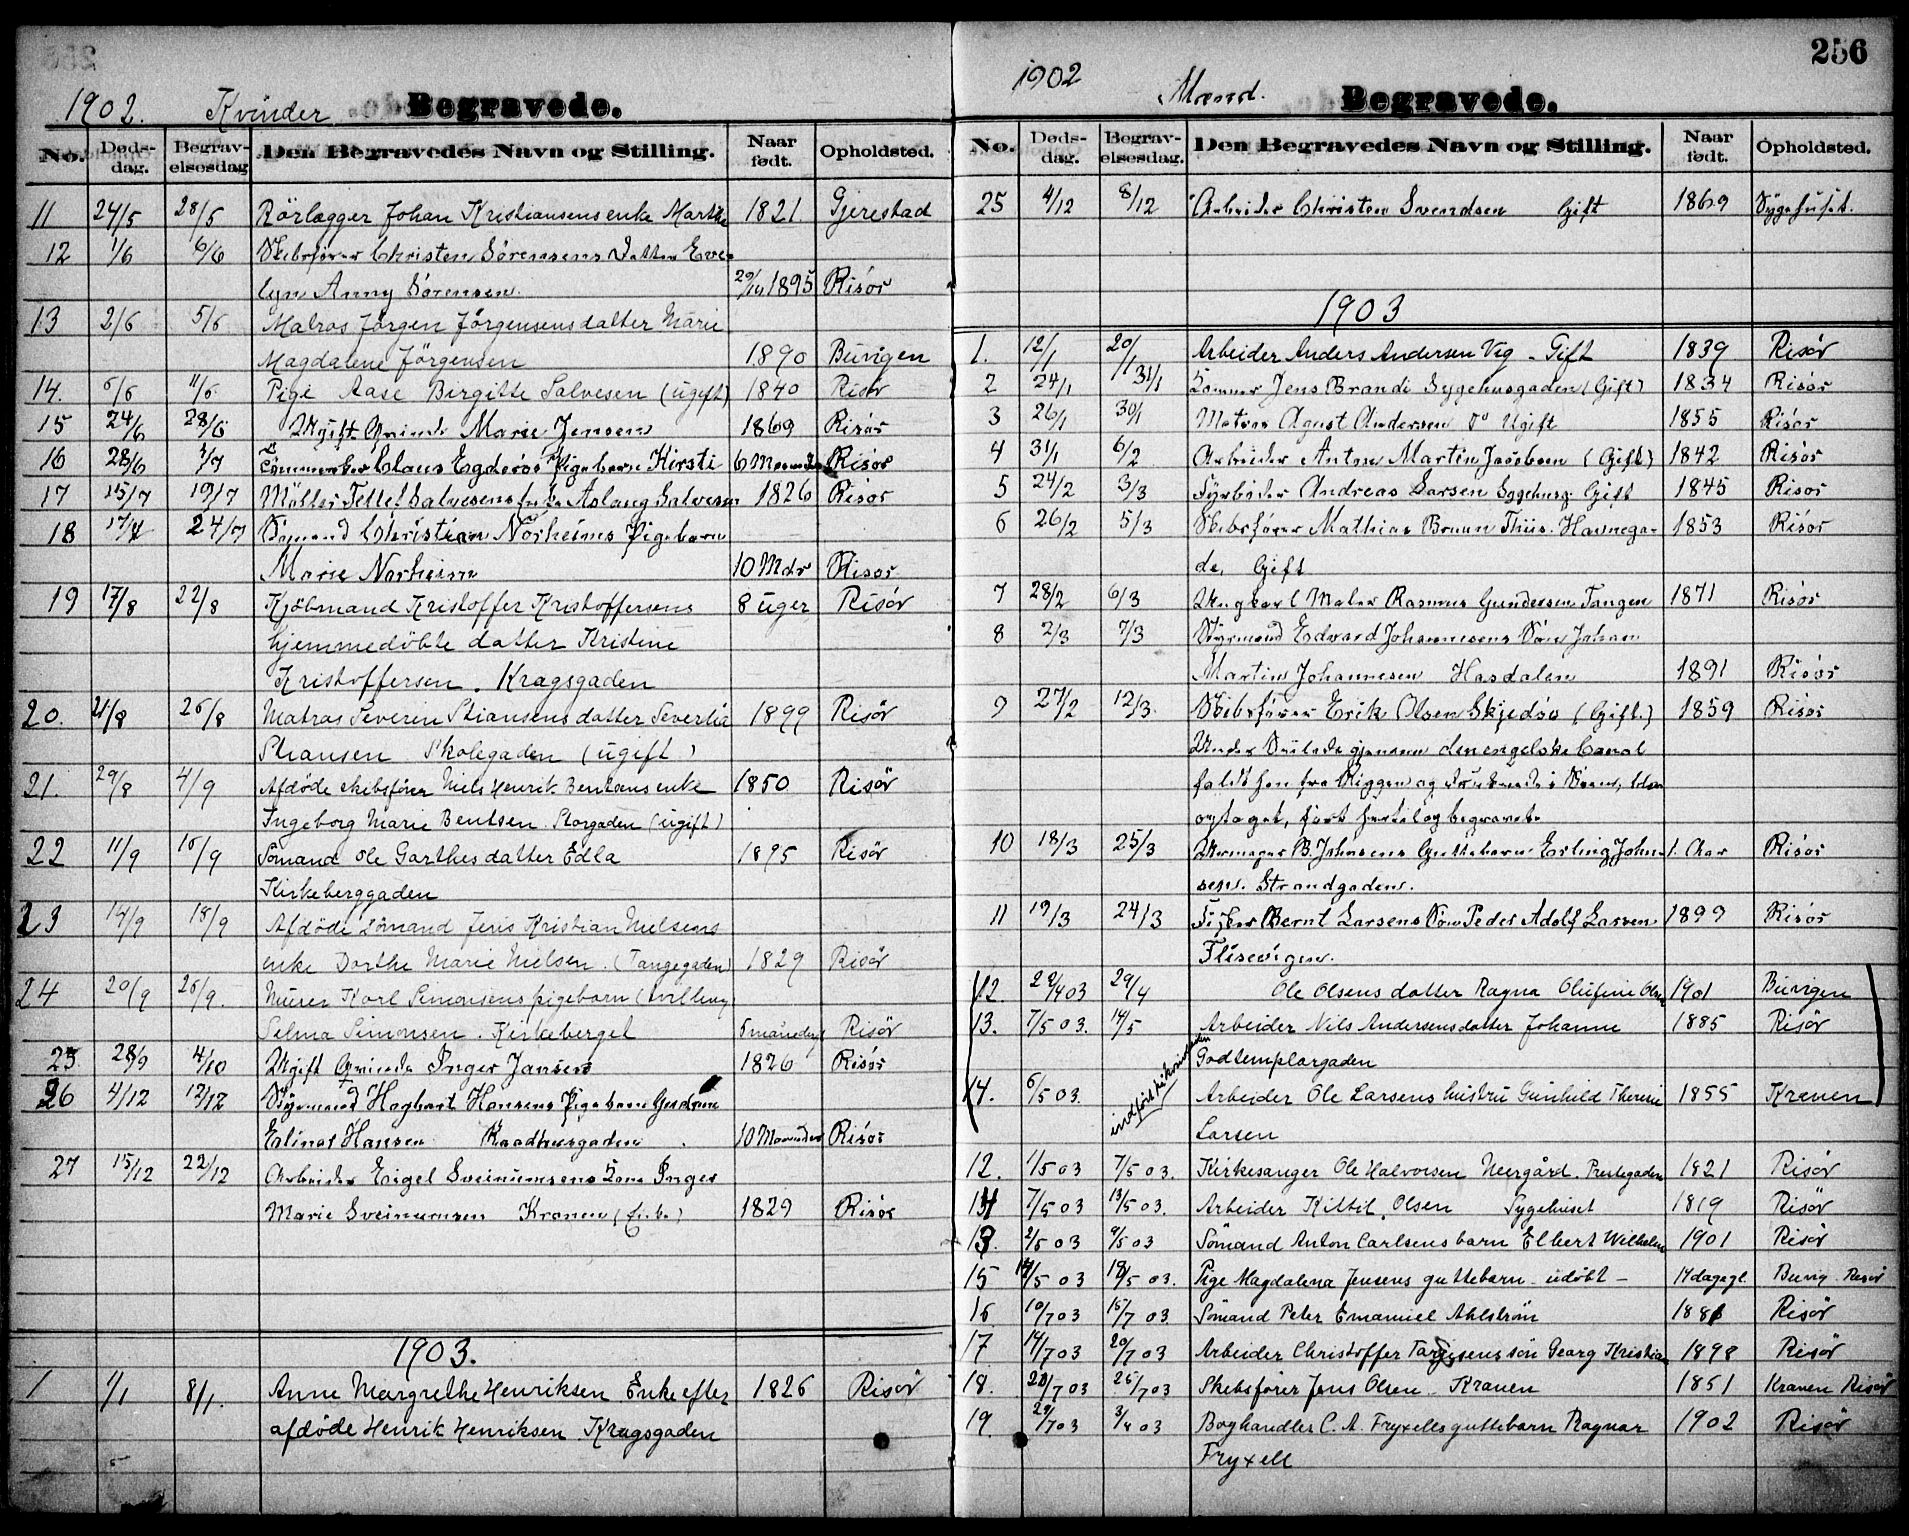 1902. Kvinder Begravede.
No. Døds-dag. Begrav-elsesdag Den Begravedes Navn og Stilling. Naar født. Opholdsted.
11 24/5 28/5 Rörlægger Johan Kristiansens enke Marthe 1821 Gjerestad
12 1/6 6/6 Skibsfører Christen Sörensens Datter Eve-
lyn Anny Sörensen 1895 Risör
13 2/6 5/6 Matros Jörgen Jörgensens datter Marie
Magdalene Jörgensen 1890 Buvigen
14. 5/6 11/6 Pige Aase Birgitte Salvesen (ugift) 1840 Risør
15 24/6 28/6 Ugift Qvinde Marie Jensen 1869 Risör
16 28/6 Claus Pigebarn Kirsti Risör
17 15/7 19/7 Möller Tellef Salvesens Enke Aslaug Salvesen 1826 Risör
18 24/7 Sømand Christian Nörheims Pigebarn
Marie Norheim 10 Mdr Risör
19 17/8 22/8 Kjöbmand Kristoffer Kristoffersens 8 uger Risör
hjemmedöbte datter Kristine
Kristoffersen. Kragsgaden
20. 21/8 26/8 Matros Severin Stiansens datter 1899 Risör
Stiansen Skolegaden (ugift)
21. 29/8 4/9 Afdöde skibsfører Niels Henrik Bentsens enke 1850 Risör
Ingeborg Marie Bentsen. Storgaden (ugift)
22 11/9 15/9 Sömand Ole Garthes datter Edla 1895 Risör
Kirkeberggaden
23 14/9 18/9 Afdöde sömand Jens Kristian Nielsens
enke Dorthe Marie Nielsen. (Tangegaden) 1829 Risör
24 20/9 26/9. Murer Karl Simonsens pigebarn (tvilling)
Selma Simonsen. Kirkeberget 5 maaneder Risör
25 28/9 4/10 Ugift Qvinde Inger Jansen 1826 Risör
26 4/12 12/12 Styrmand Hagbart Hansens Pigebarn Gudrun
Hansen Raadhusgaden 10 Maaneder Risör
27 15/12 22/12 Arbeider Eigel Sveinumsens Kone Inger
Marie Sveinumsen Kranen 1829 Risör
1903.
1 1/1 8/1. Anne Margrethe Henriksen. Enke efter 1826 Risør
afdöde Henrik Henriksen. Kragsgaden
256
1902 Mænd. Begravede.
No. Døds-dag. Begrav-elsesdag. Den Begravedes Navn og Stilling. Naar født. Opholdsted.
25 4/12 8/12 Arbeider Christen Svendsen Gift 1869 Sygehuset.
1903
1. 12/1 20/1 Arbeider Anders Andersen Vig - Gift 1839 Risör
2 24/1 31/1 Jens Brandt Sygehusgaden (Gift) 1834 Risör
3 26/1 30/1 Matros Agust Andersen Ugift 1855 Risör
4 31/1 6/2 Arbeider Anton Martin Jacobsen (Gift) 1842 Risör
5 24/2 3/3 Fyrbøder Andreas Larsen Sygehusg. Gift 1845 Risör
6 26/2 5/3 Skibsfører Mathias Bruun Thiis. Havnega- 1853 Risör
de, Gift
7 28/2 6/3 Ungkar Maler Rasmus Gundersen Tangen 1871 Risör
8 2/3 7/3 Styrmand Edvard Johannesens Søn Johan
Martin Johannesen Hasdalen 1891 Risör
9 27/2 12/3. Skibsfører Erik Olsen Skjedsø (Gift.) 1859 Risör
Under Seilads gjennem den engelske Canal
faldt han fra Riggen og druknede i Søen, blev
optaget,ført hertil og begravet.
10 18/3 25/3 Urmager B. Johnsens Guttebarn Erling John- 1. Aar Risör
sen. Strandgaden.
11 19/3 24/3 Fisker Bernt Larsens Søn Peder Adolf Larsen 1899 Risör
Flisevigen.
12. 22/4 03 29/4 Ole Olsens datter Ragna Olufine Olsen 1901 Buvigen
13. 7/5 03. 14/5 Arbeider Nils Andersens datter Johanne 1885 Risör
Godtemplargaden
14. 6/5 03. indført Arbeider Ole Larsens hustru Gunhild Therese 1855 Kranen
Larsen
12. 1/5 03 7/5 03. Kirkesanger Ole Halvorsen Neergård. Prestegaden 1821 Risör
14 7/5 03 13/5 03. Arbeider Kittil. Olsen Sygehuset 1819 Risör
13. 2/5 03 9/5 03 Sömand Anton Carlsens barn Elbert Wilhelm 1901 Risör
15 14/5 03 18/5 03. Pige Magdalena Jensens guttebarn - udöbt - 14 dage gl. Buvig. Risör
16 10/7 03 15/7 03 Sömand Peter Emanuel Ahlström 1881 Risör
17 14/7 03 20/7 03 Arbeider Christoffer Tarjesens sön Georg Kristian 1898 Risör
18. 20/7 03 25/7 03 Skibsfører Jens Olsen. Kranen 1851 Kranen Risör
19. 29/7 03 3/8 03 Boghandler C. A. Fryxells guttebarn Ragnar 1902 Risör
Fryxell